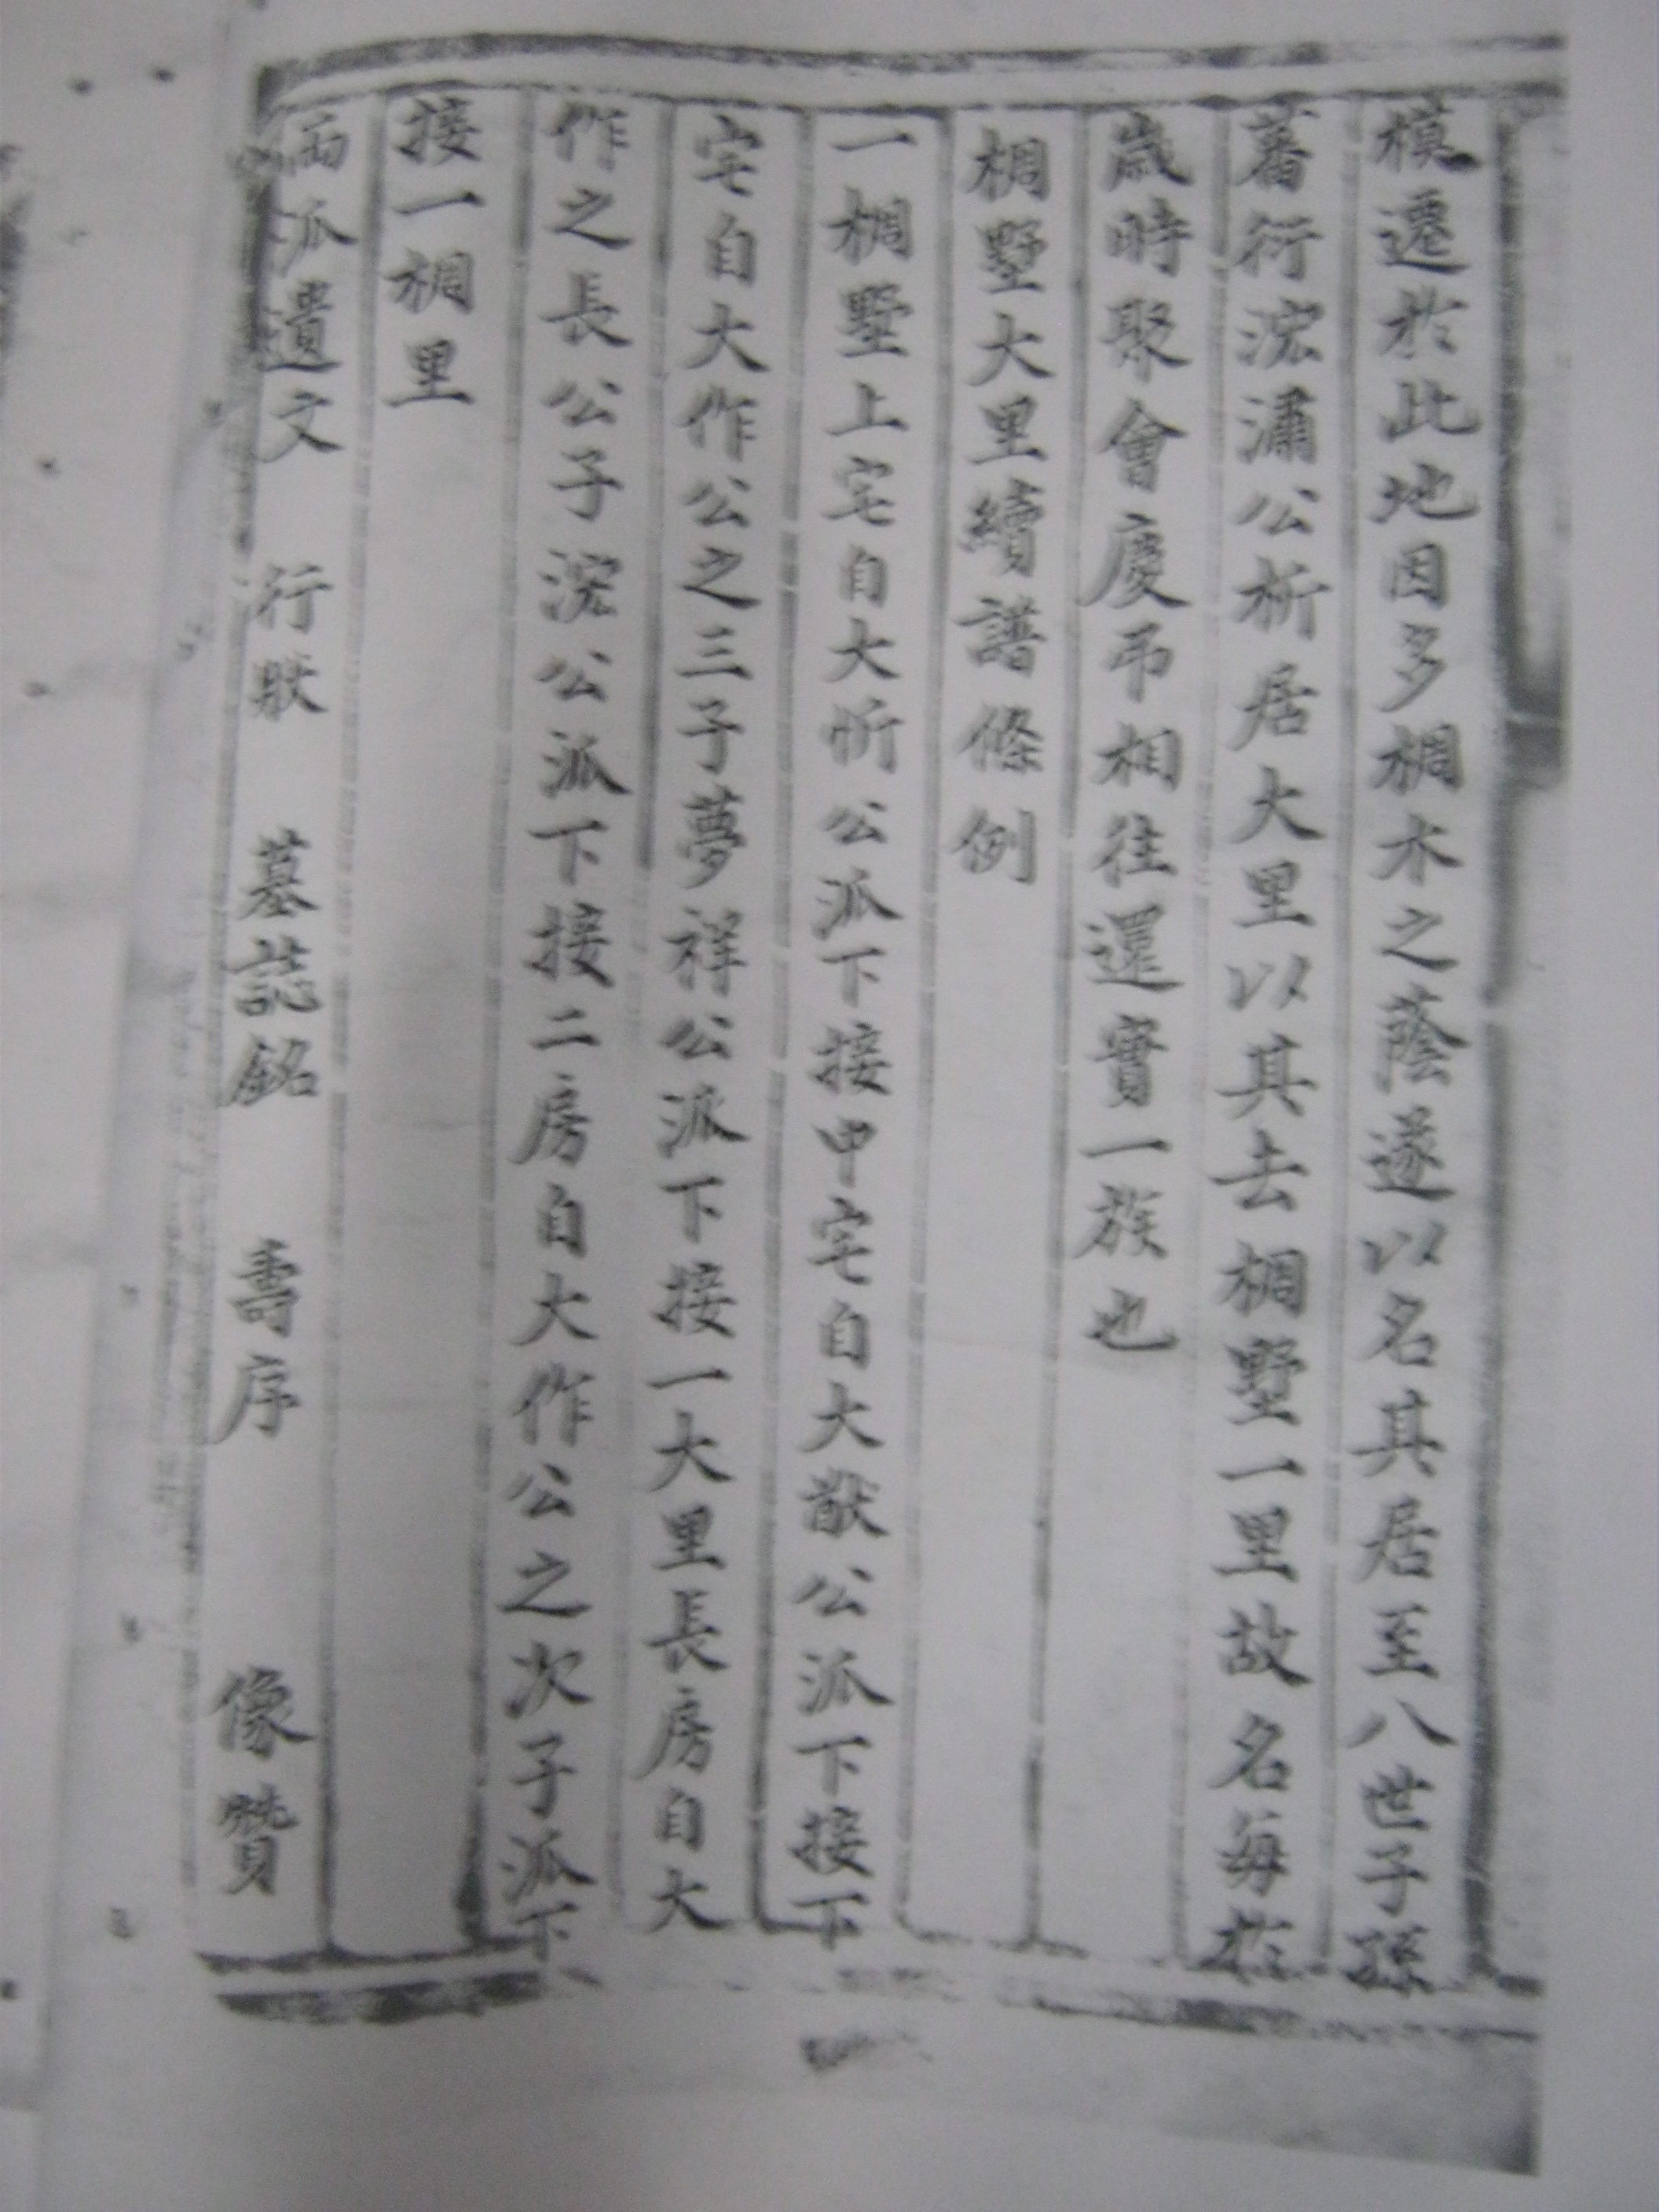 模遷於此地因多椆木之蔭遂以名其居至八世子孫
蕃衍浤潚公析居大里以其去椆墅一里故名每於
歲時聚會慶吊相往還實一族也
椆墅大里續譜條例
一椆墅上宅自大忻公派下接中宅自大猷公派下接下
宅自大作公之三子夢祥公派下接一大里長房自大
作之長公子浤公派下接二房自大作公之次子派下
接一椆里
兩派遺文 行狀 墓誌銘 壽序 像贊